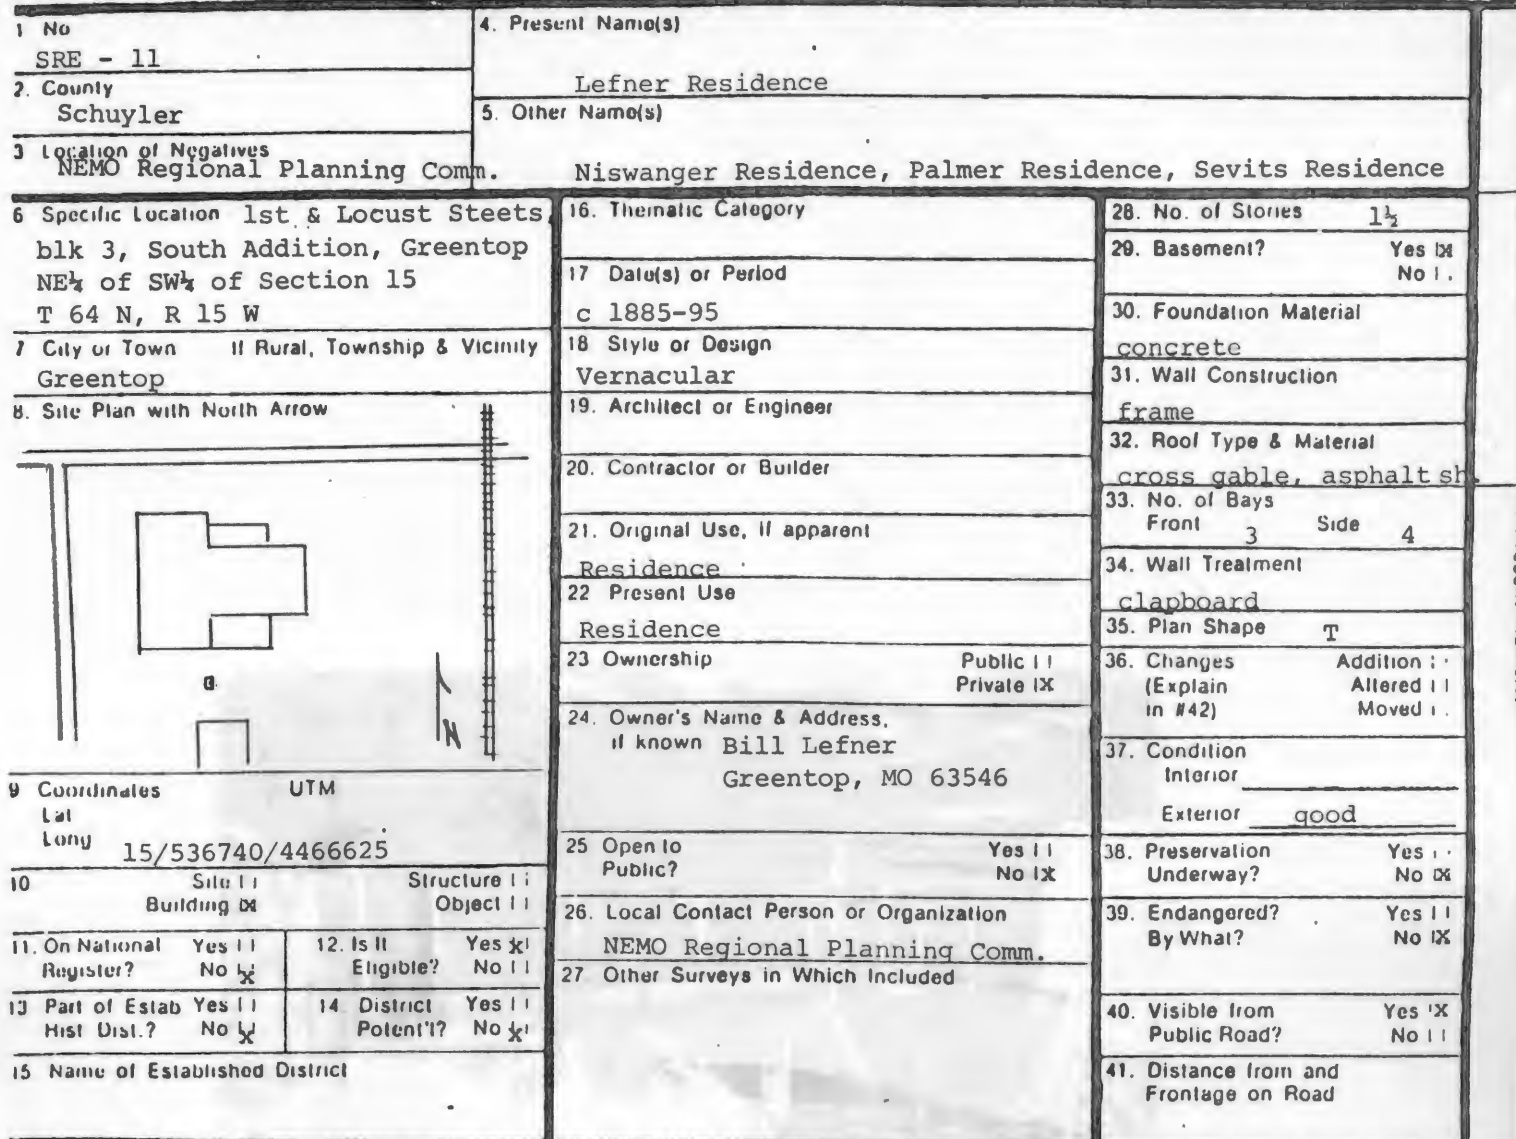 1 No
SRE - 11
2. County
Schuyler
3 Location of Negatives
NEMO Regional Planning Comm.
4. Present Name(s)
Lefner Residence
5. Other Name(s)
Niswanger Residence, Palmer Residence, Sevits Residence
6 Specific Location 1st & Locust Steets,
blk 3, South Addition, Greentop
NE¼ of SW¼ of Section 15
T 64 N, R 15 W
7 City or Town If Rural, Township & Vicinity
Greentop
8. Site Plan with North Arrow
N
9 Coordinates UTM
Lat
Long 15/536740/4466625
10 Site [ ] Structure [ ]
Building [X] Object [ ]
11. On National Yes [ ]
Register? No [X]
12. Is It Yes [X]
Eligible? No [ ]
13 Part of Estab Yes [ ]
Hist Dist.? No [X]
14 District Yes [ ]
Potent'l? No [X]
15 Name of Established District
16. Thematic Category
17 Date(s) or Period
c 1885-95
18 Style or Design
Vernacular
19. Architect or Engineer
20. Contractor or Builder
21. Original Use, if apparent
Residence
22 Present Use
Residence
23 Ownership Public [ ]
Private [X]
24. Owner's Name & Address,
if known Bill Lefner
Greentop, MO 63546
25 Open to Yes [ ]
Public? No [X]
26. Local Contact Person or Organization
NEMO Regional Planning Comm.
27 Other Surveys in Which Included
28. No. of Stories 1½
29. Basement? Yes [X]
No [ ]
30. Foundation Material
concrete
31. Wall Construction
frame
32. Roof Type & Material
cross gable, asphalt sh.
33. No. of Bays
Front 3 Side 4
34. Wall Treatment
clapboard
35. Plan Shape T
36. Changes Addition [ ]
(Explain Altered [ ]
in #42) Moved [ ]
37. Condition
Interior
Exterior good
38. Preservation Yes [ ]
Underway? No [X]
39. Endangered? Yes [ ]
By What? No [X]
40. Visible from Yes [X]
Public Road? No [ ]
41. Distance from and
Frontage on Road